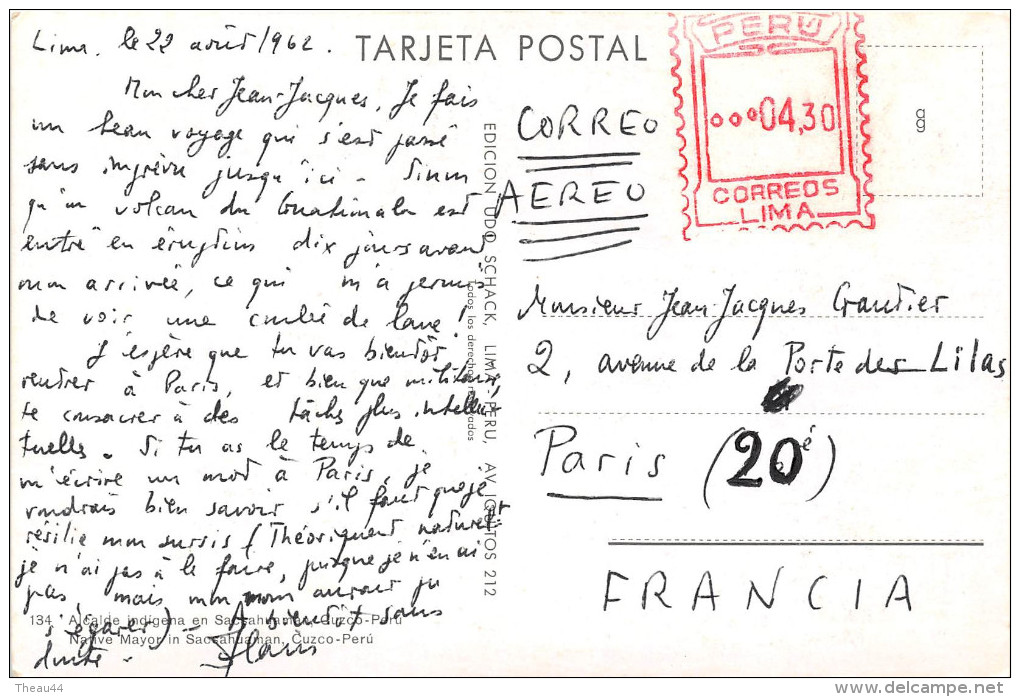 Lima. le 22 août 1962.
TARJETA POSTAL
Mon cher Jean-Jacques, Je fais
un beau voyage qui s'est passé
sans imprévu jusqu'ici. Sinon
qu'un volcan du Guatimala est
entré en éruption dix jours avant
mon arrivée, ce qui m'a permis
de voir une coulée de lave !
J'espère que tu vas bientôt
rentrer à Paris, et bien que militaire,
te consacrer à des tâches plus intellec
tuelles. Si tu as le temps de
m'écrire un mot à Paris, je
voudrais bien savoir s'il faut que je
résilie mon sursis (Théoriquement
je n'ai pas à le faire, puisque je n'en ai
pas mais mon nom aurait pu
s'égarer) - A bientôt sans
doute - Alain
134 Alcalde indígena en Sacsahuaman, Cuzco-Perú
Native Mayor in Sacsahuaman, Cuzco-Perú
EDICION UDO SCHACK, LIMA-PERU, AV. IQUITOS 212
Todos los derechos reservados
CORREO
AEREO
PERU
04,30
CORREOS
LIMA
Monsieur Jean-Jacques Gautier
2, avenue de la Porte des Lilas
Paris (20é)
FRANCIA
Theau44
delcampe.net